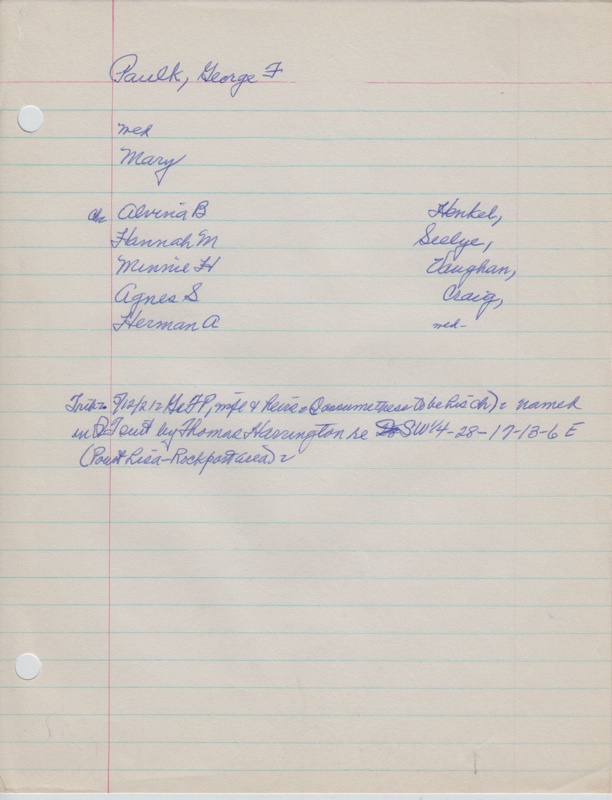 Paulk, George F
med
Mary
ch Alvina B Henkel,
Hannah M Seelye,
Minnie H Vaughan,
Agnes S Craig,
Herman A med-
Trib 8/12/212 Ge F P, wife & heirs (I assume these to be his ch) named
in QT suit by Thomas Harrington re SW 1/4-28-17-13-6 E
(Point Lisa-Rockport area)